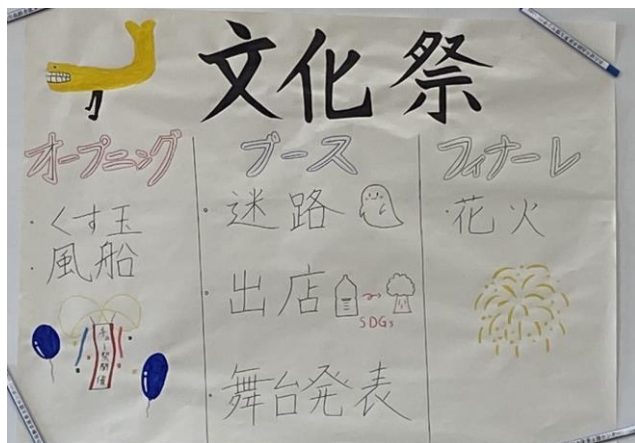 文化祭
オープニング
・くす玉
・風船
ブース
・迷路
・出店
SDGs
・舞台発表
フィナーレ
・花火